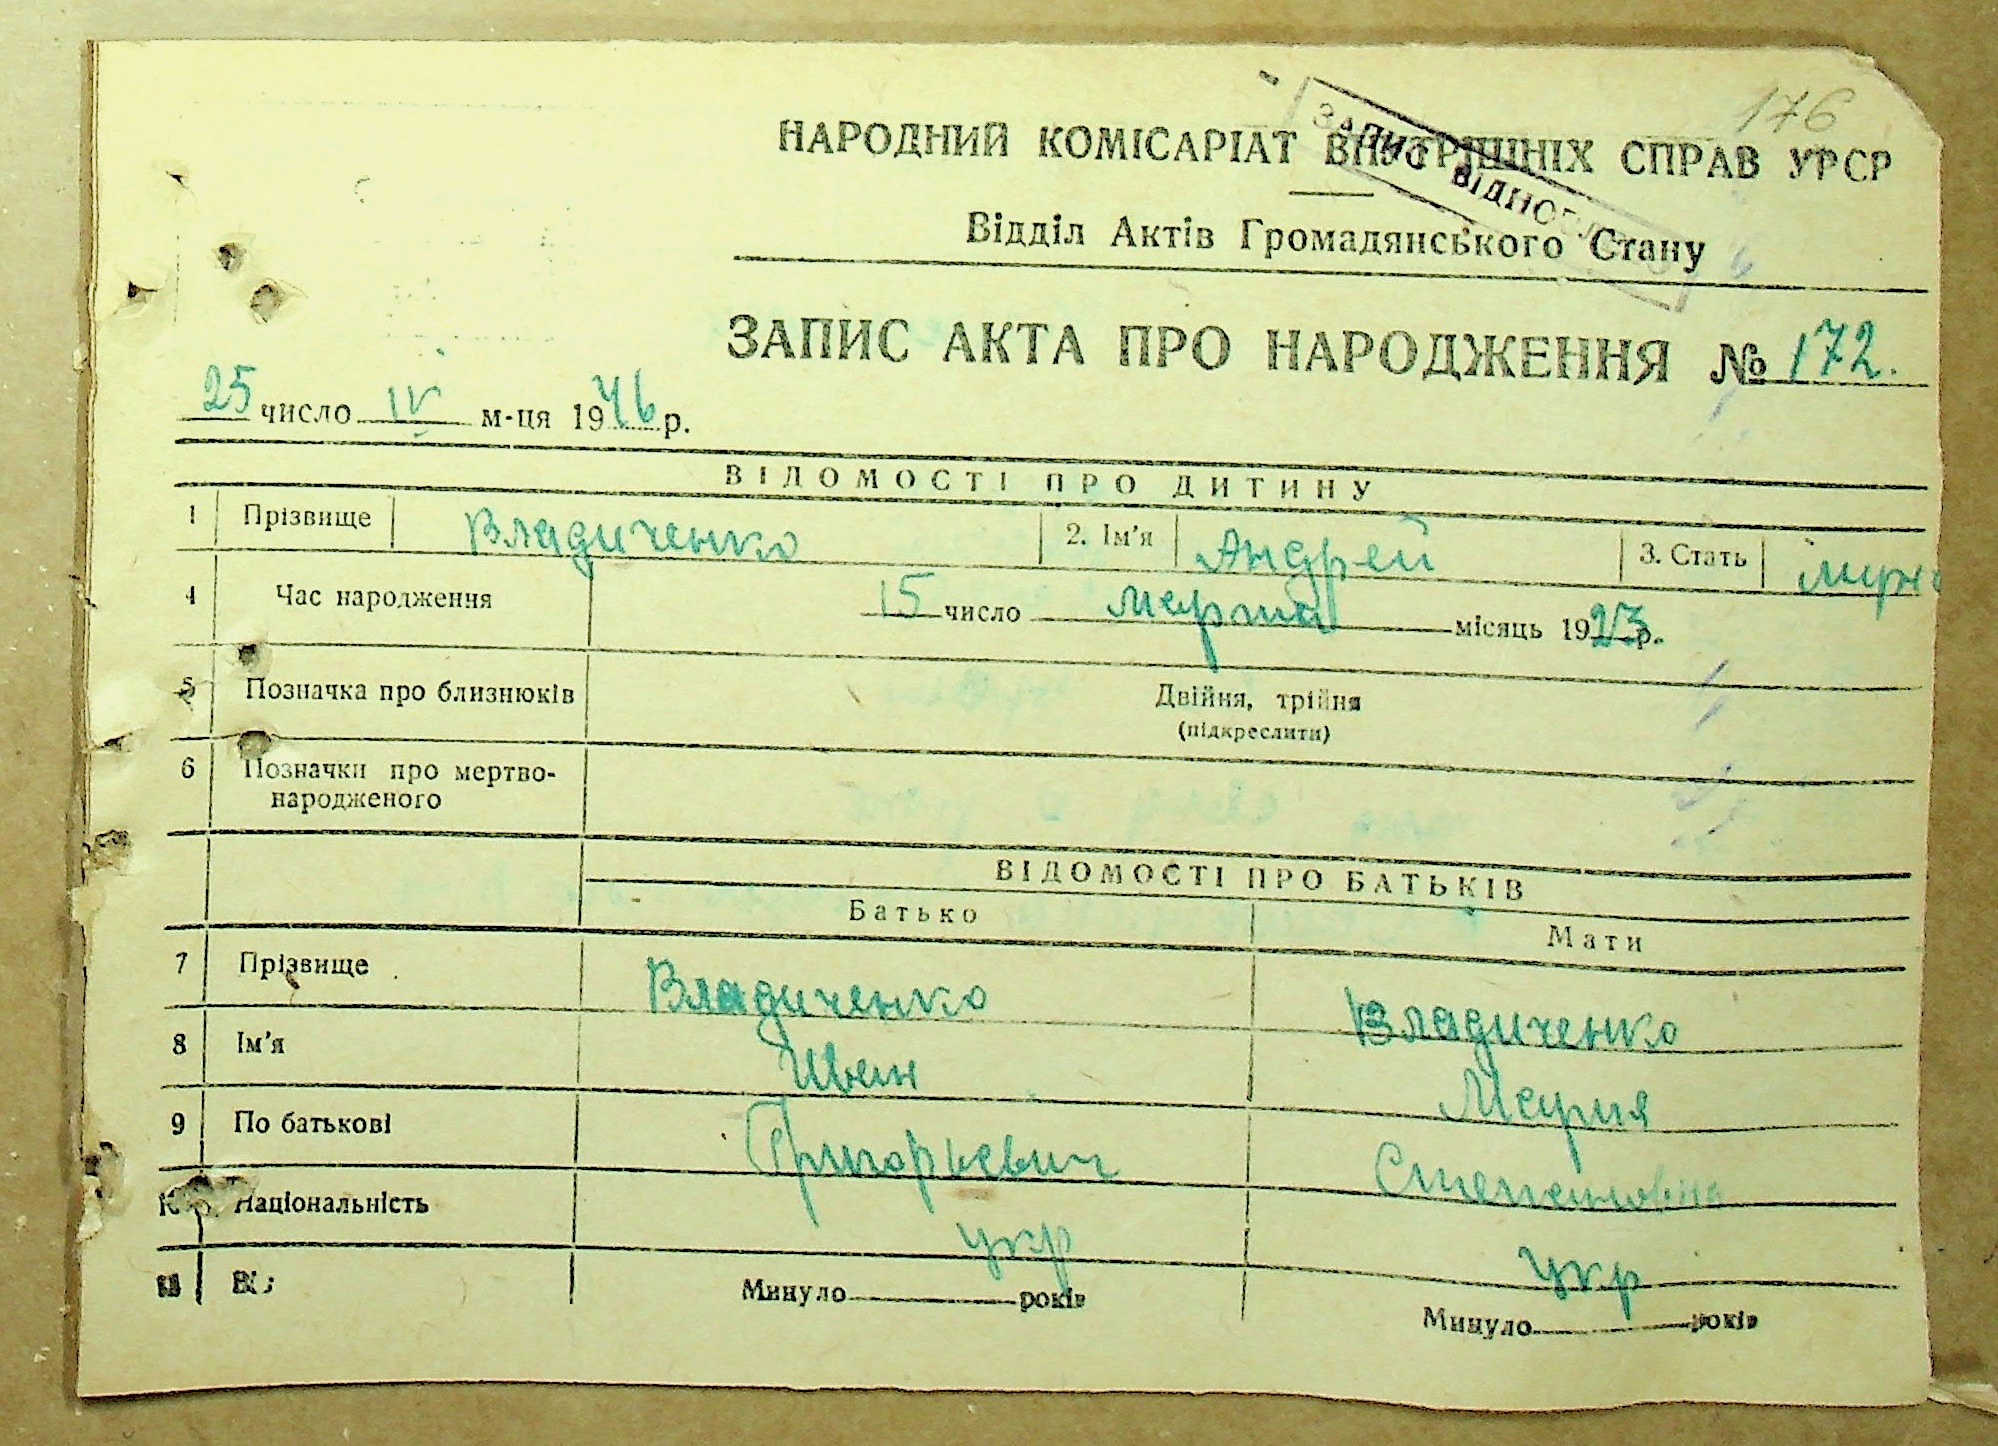 176
НАРОДНИЙ КОМІСАРІАТ ВНУТРІШНІХ СПРАВ УРСР
ЗАПИС ВІДНОВЛЕНО
Відділ Актів Громадянського Стану
ЗАПИС АКТА ПРО НАРОДЖЕННЯ № 172.
25 число IV м-ця 1946 р.
ВІДОМОСТІ ПРО ДИТИНУ
1 Прізвище Владиченко 2. Ім'я Андрей 3. Стать муж
4 Час народження 15 число марта місяць 1923 р.
5 Позначка про близнюків Двійня, трійня
(підкреслити)
6 Позначки про мертво-
народженого
ВІДОМОСТІ ПРО БАТЬКІВ
Батько Мати
7 Прізвище Владиченко Владиченко
8 Ім'я Иван Мария
9 По батькові Григорьевич Степановна
Національність укр укр
Минуло років Минуло років